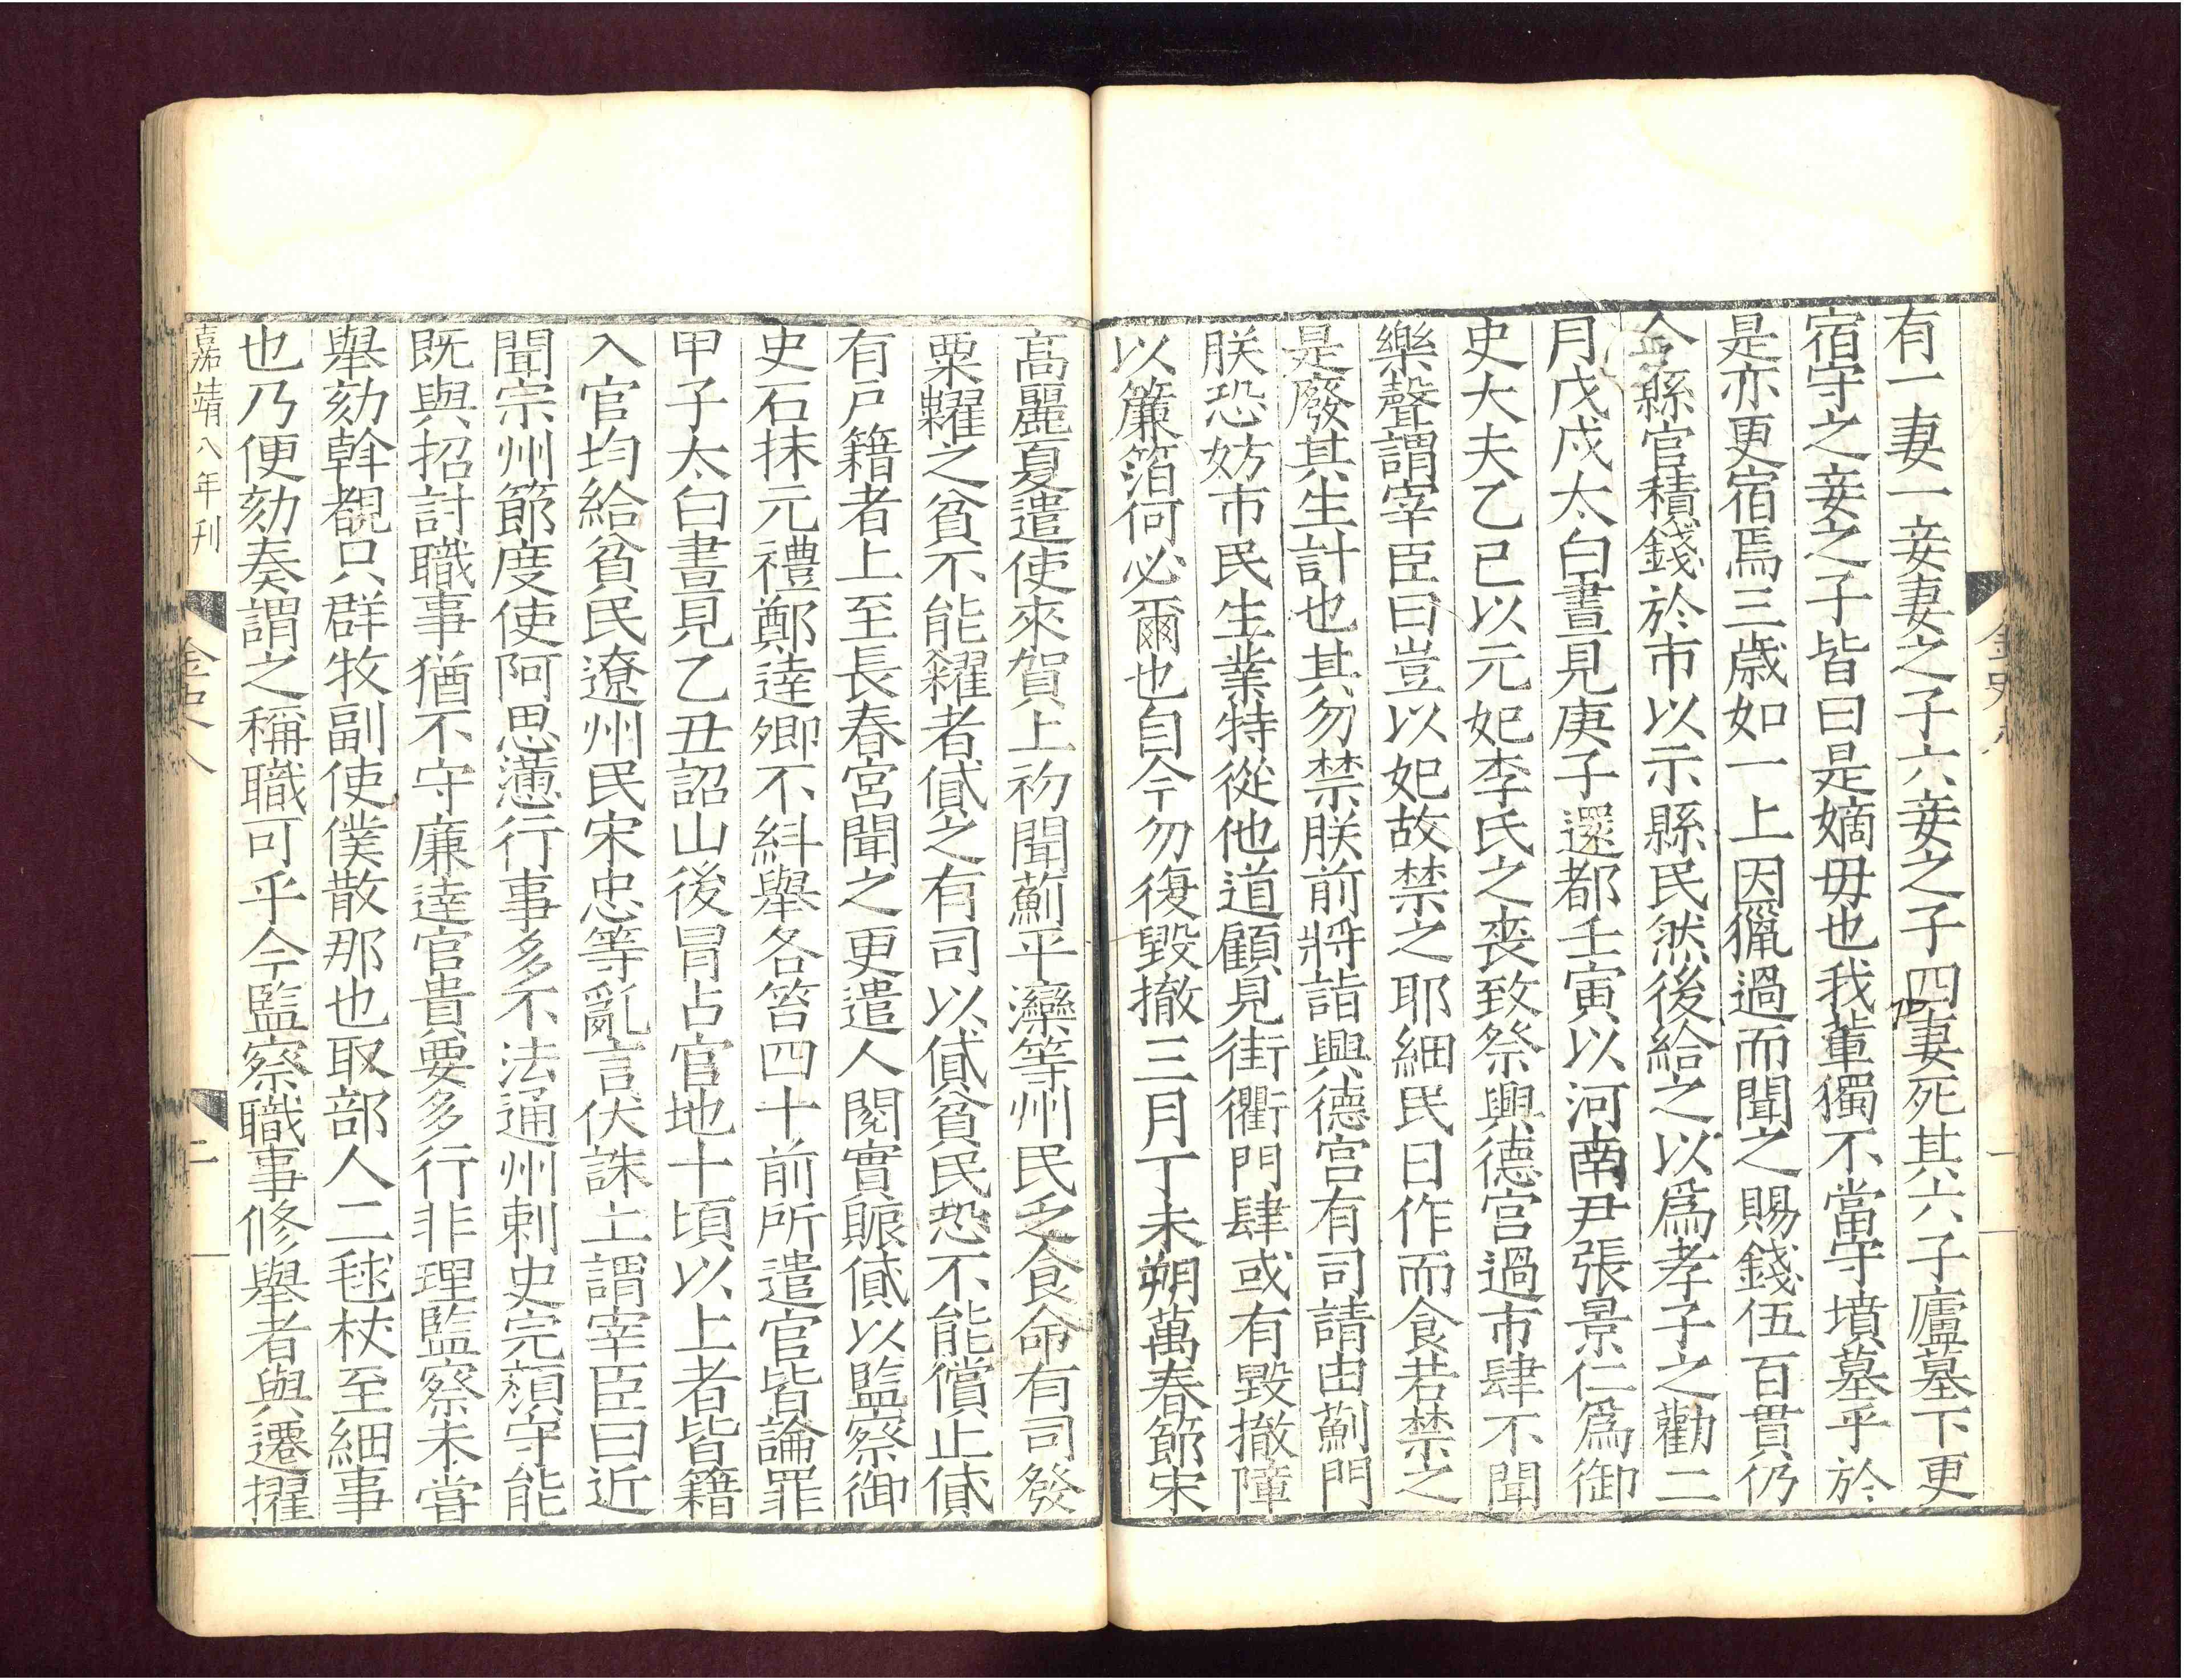 有一妻一妾妻之子六妾之子四妻死其六子廬墓下更
宿守之妾之子皆曰是嫡母也我輩獨不當守墳墓乎於
是亦更宿焉三歲如一上因獵過而聞之賜錢伍百貫仍
令縣官積錢於市以示縣民然後給之以爲孝子之勸二
月戊戌太白晝見庚子還都壬寅以河南尹張景仁爲御
史大夫乙巳以元妃李氏之喪致祭興德宮過市肆不聞
樂聲謂宰臣曰豈以妃故禁之耶細民日作而食若禁之
是廢其生計也其勿禁朕前將詣興德宮有司請由薊門
朕恐妨市民生業特從他道顧見街衢門肆或有毀撤障
以簾箔何必爾也自今勿復毀撤三月丁未朔萬春節宋
高麗夏遣使來賀上初聞薊平灤等州民乏食命有司發
粟糶之貧不能糴者貸之有司以貸貧民恐不能償止貸
有戶籍者上至長春宮聞之更遣人閱實賑貸以監察御
史石抹元禮鄭達卿不糾舉各笞四十前所遣官皆論罪
甲子太白晝見乙丑詔山後冒占官地十頃以上者皆籍
入官均給貧民遼州民宋忠等亂言伏誅上謂宰臣曰近
聞宗州節度使阿思懣行事多不法通州刺史完顏守能
既與招討職事猶不守廉達官貴要多行非理監察未嘗
舉劾斡覩只群牧副使僕散那也取部人二毬杖至細事
也乃便劾奏謂之稱職可乎今監察職事修舉者與遷擢
嘉靖八年刊
金史八
二